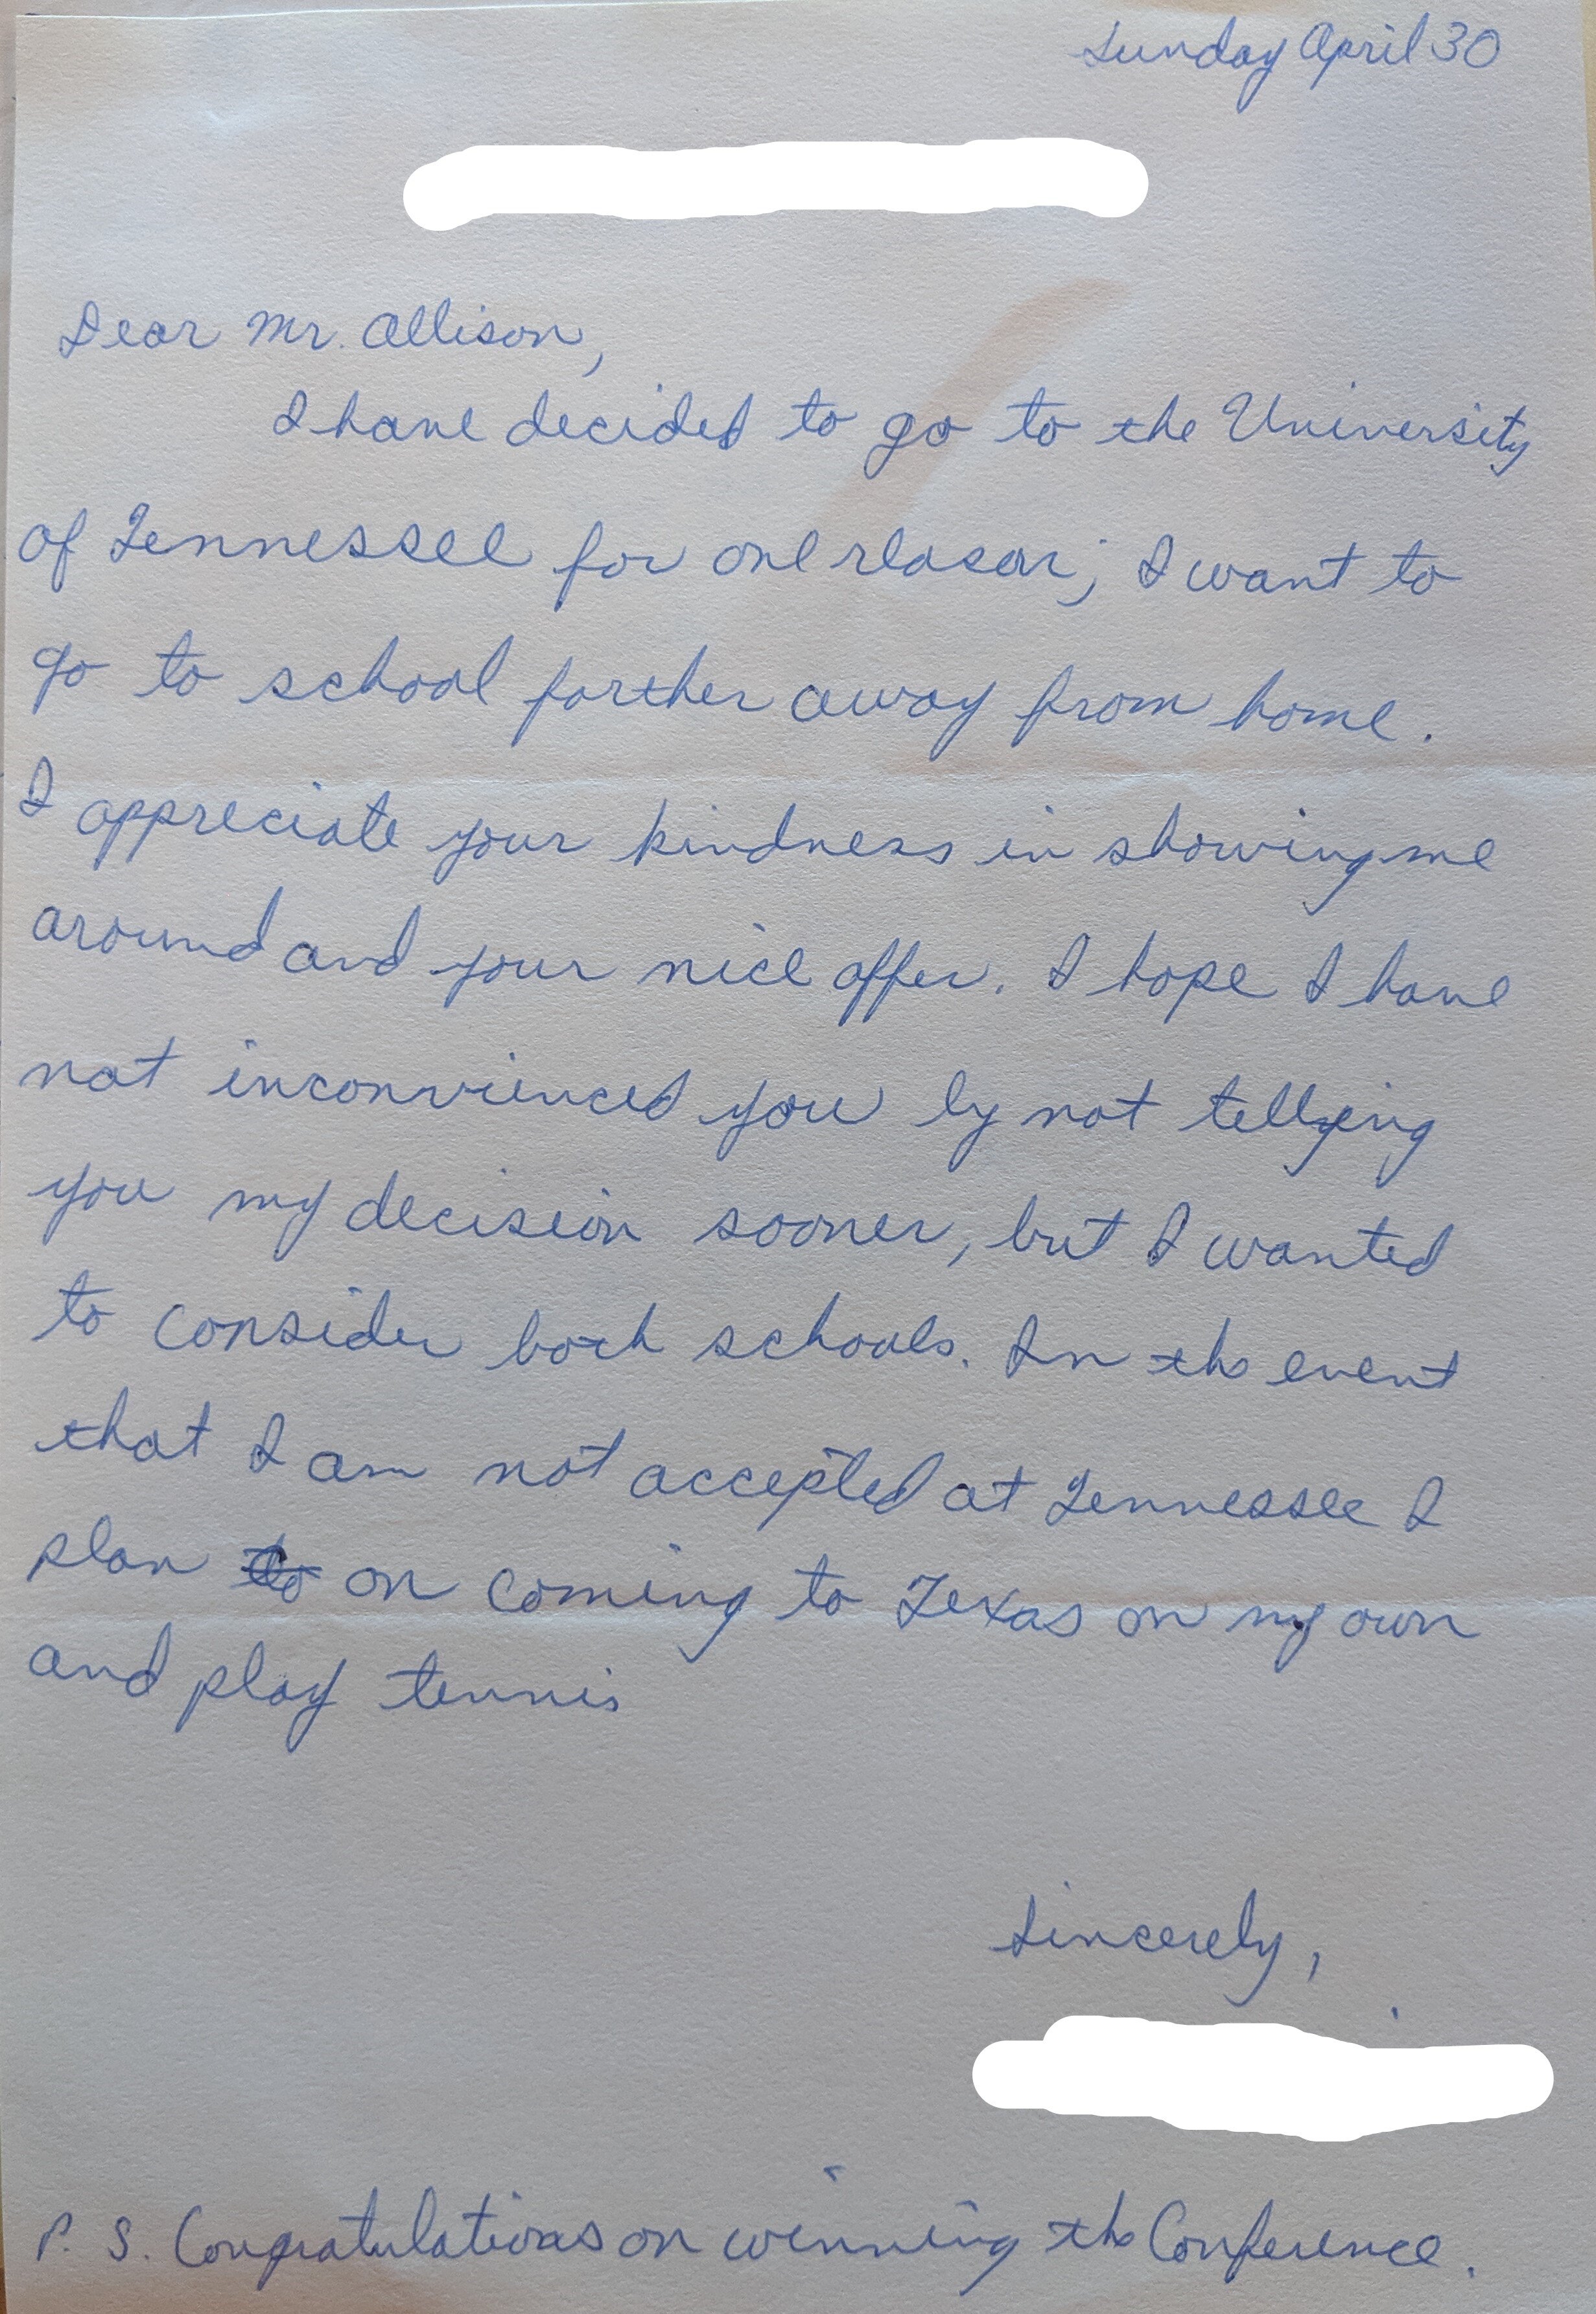 Sunday April 30
Dear Mr. Allison,
I have decided to go to the University
of Tennessee for one reason; I want to
go to school farther away from home.
I appreciate your kindness in showing me
around and your nice offer. I hope I have
not inconvienced you by not telling
you my decision sooner, but I wanted
to consider both schools. In the event
that I am not accepted at Tennessee I
plan to on coming to Texas on my own
and play tennis
Sincerely,
P. S. Congratulations on winning the Conference.